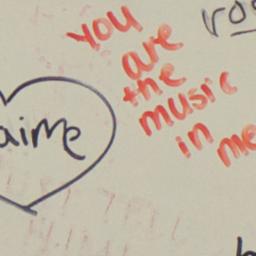 you
are
the
music
in
me
aime